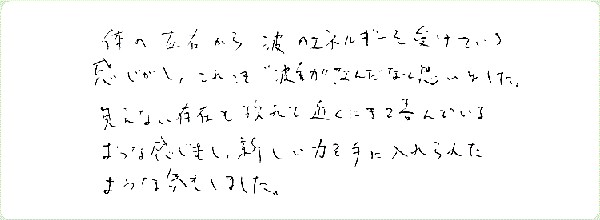 体の左右から波のエネルギーを受けている
感じがし、これも"波動"なんだなと思いました。
見えない存在も 近くにきて喜んでいる
ような感じもし、新しい力を手に入れられた
ような気もしました。